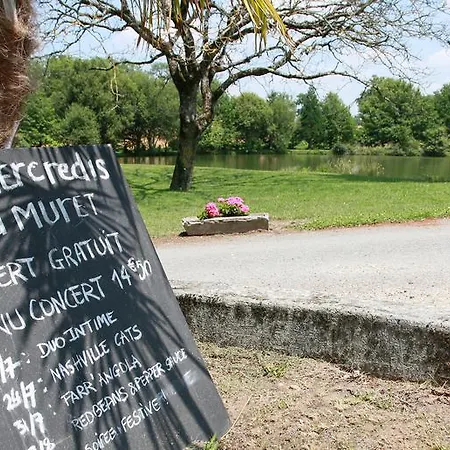 ercredis
u Muret
ert gratuit
nu concert 14€50
/7 : Duo Intime
/7 : Nashville Cats
24/7 : Farr'Angola
31/7 : Redbeans & Pepper Sauce
/8 : Soirée festive !!